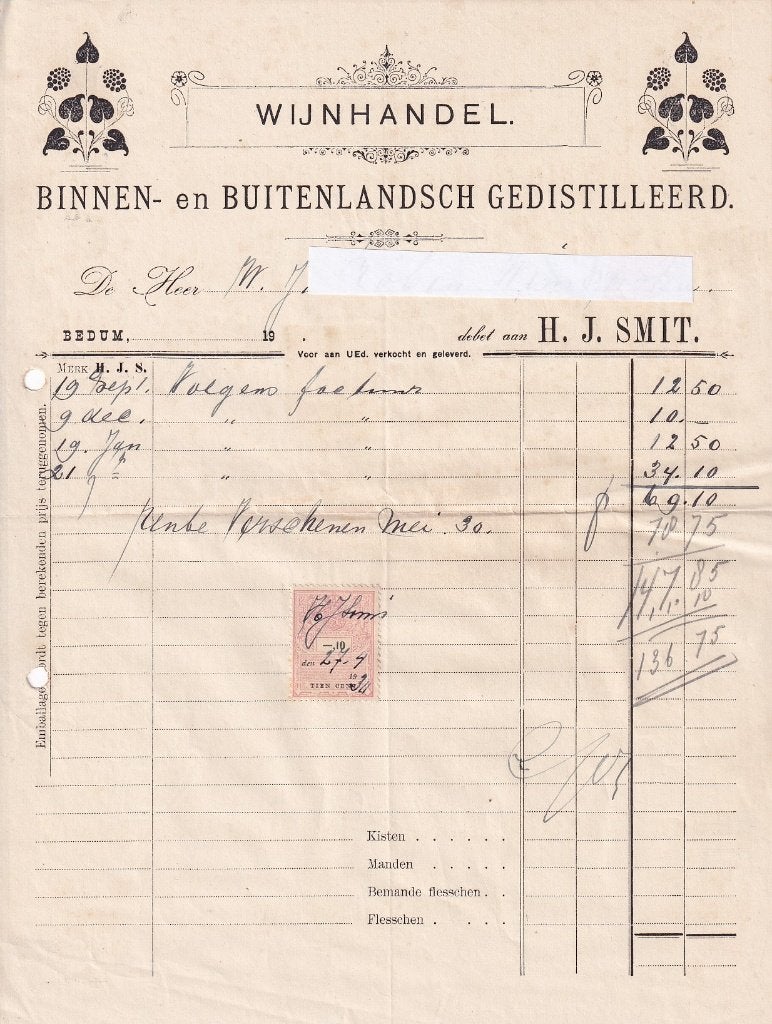 WIJNHANDEL.
BINNEN- en BUITENLANDSCH GEDISTILLEERD.
De Heer W. J.
BEDUM, 19 . debet aan H. J. SMIT.
Voor aan UEd. verkocht en geleverd.
MERK H. J. S.
19 Sept. Volgens factuur 12 50
9 dec. " " 10.-
19. Jan " " 12 50
21 " " " 34.10
69.10
Verschenen Mei 30. 70 75
147.85
11.10
136 75
Emballage wordt tegen berekenden prijs teruggenomen.
HJ Smit
-.10
den 27-7
19 32
TIEN CENT
Kisten . . . . . .
Manden . . . . .
Bemande flesschen . .
Flesschen . . . . .